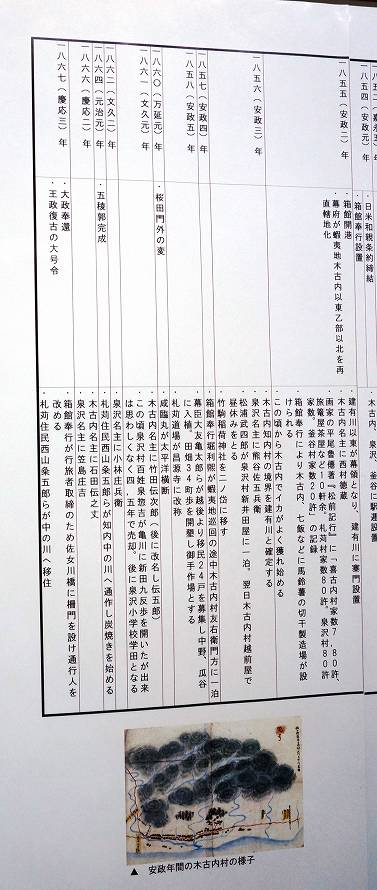 一八五四（安政元）年
一八五五（安政二）年
一八五六（安政三）年
一八五七（安政四）年
一八五八（安政五）年
一八六〇（万延元）年
一八六一（文久元）年
一八六二（文久二）年
一八六四（元治元）年
一八六六（慶応二）年
一八六七（慶応三）年
・日米和親条約締結
・箱館奉行設置
・箱館開港
・幕府が蝦夷地木古内以東乙部以北を再
直轄地化
・桜田門外の変
・五稜郭完成
・大政奉還
・王政復古の大号令
・木古内、泉沢、釜谷に駅逓設置
・建有川以東が幕領となり、建有川に寨門設置
・木古内名主に西村徳蔵
・画家の平尾魯僊著『松前記行』に「喜古内村家数７、８０許、
旅篭屋茶屋など１０軒余り。札苅村家数８０許。泉沢村８０許
家数。釜谷村家数２０許」の記録
・箱館奉行により木古内、七飯などに馬鈴薯の切干製造場が設
けられる
・この頃から木古内でイカがよく獲れ始める
・木古内知内両村の境界を建有川と確定する
・泉沢名主に熊谷佐五兵衛
・松浦武四郎が泉沢村新井田屋に一泊。翌日木古内村越前屋で
昼休みをとる
・竹駒稲荷神社を二ノ岱に移す
・箱館奉行堀利熙が蝦夷地巡回の途中木古内村友右衛門方に一泊
・幕臣大友亀太郎らが越後より移民２４戸を募集し中野、瓜谷
に入植。田畑３４町歩を開墾し御手作場とする
・札苅道場が昌源寺に改称
・咸臨丸が太平洋横断
・木古内名主に竹田伝次郎（後に改名し伝五郎）
・この頃泉沢村百姓惣吉が亀川に新田九反歩を開いたが出来
は思わしくなく四、五年で売却。後に泉沢小学校学田となる
・泉沢名主に小林庄兵衛
・札苅住民西山粂五郎らが知内中の川へ通作し炭焼きを始める
・木古内名主に石田伝之丈
・泉沢名主に笠島庄吉
・箱館奉行が行旅者取締のため佐女川橋に柵門を設け通行人を
改める
・札苅住民西山粂五郎らが中の川へ移住
▲ 安政年間の木古内村の様子